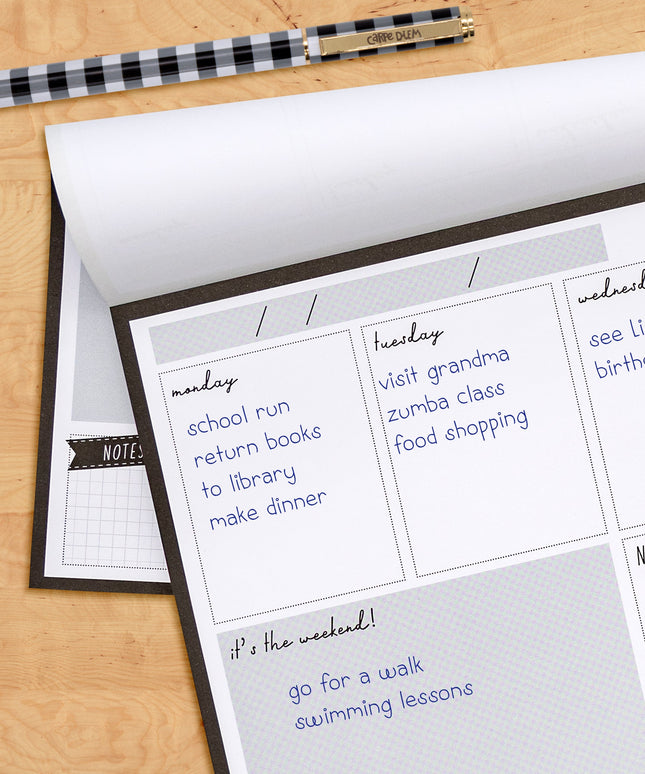 CARPE DIEM
monday
school run
return books
to library
make dinner
tuesday
visit grandma
zumba class
food shopping
see
NOTES
it's the weekend!
go for a walk
swimming lessons